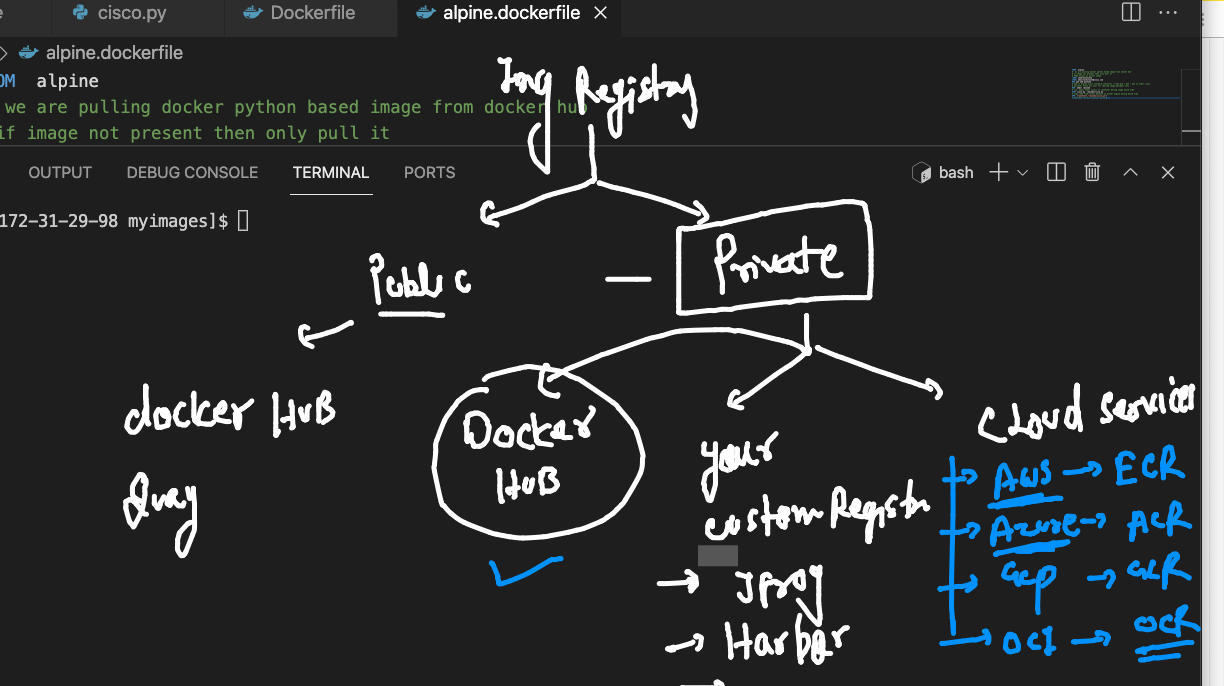 e
cisco.py
Dockerfile
alpine.dockerfile
alpine.dockerfile
OM alpine
we are pulling docker python based image from docker hub
if image not present then only pull it
OUTPUT
DEBUG CONSOLE
TERMINAL
PORTS
bash
172-31-29-98 myimages]$
Img Registry
Public
Private
docker HUB
Quay
Docker
HUB
your
custom Registr
Jfrog
Harbor
cloud services
AWS → ECR
Azure → ACR
GCP → GCR
OCI → OCR